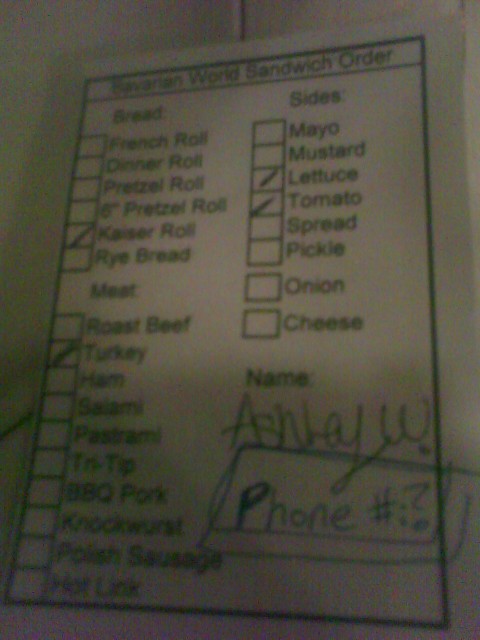 Bavarian World Sandwich Order
Bread:
French Roll
Dinner Roll
Pretzel Roll
6" Pretzel Roll
Kaiser Roll
Rye Bread
Meat:
Roast Beef
Turkey
Ham
Salami
Pastrami
Tri-Tip
BBQ Pork
Knockwurst
Polish Sausage
Hot Link
Sides:
Mayo
Mustard
Lettuce
Tomato
Spread
Pickle
Onion
Cheese
Name:
Ashley W.
Phone #:?